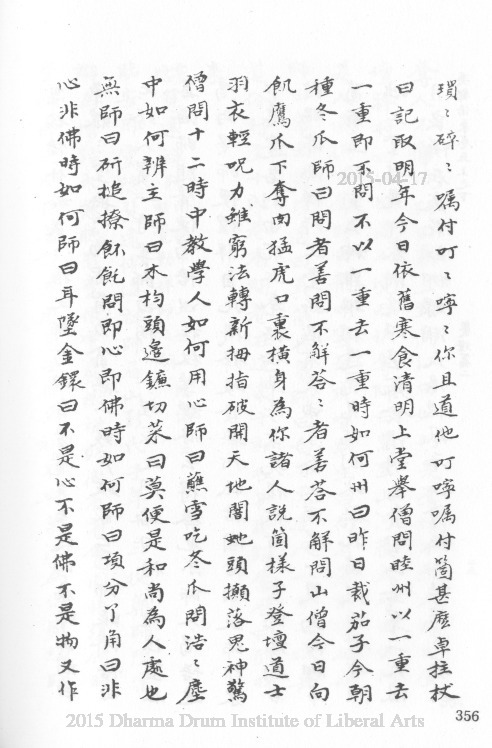 瑣〻碎〻囑付叮〻嚀〻你且道他叮嚀囑付箇甚麼卓拄杖
曰記取明年今日依舊寒食清明上堂舉僧問睦州以一重去
一重即不問不以一重去一重時如何州曰昨日栽茄子今朝
種冬瓜師曰問者善問不解荅〻者善荅不解問山僧今日向
飢鷹爪下奪肉猛虎口裏橫身為你諸人說箇樣子登壇道士
羽衣輕呪力雖窮法轉新拇指破開天地闇虵頭攧落鬼神驚
僧問十二時中教學人如何用心師曰蘸雪吃冬瓜問浩〻塵
中如何辨主師曰木杓頭邊鐮切菜曰莫便是和尚為人處也
無師曰研槌撩飥飥問即心即佛時如何師曰項分丫角曰非
心非佛時如何師曰耳墜金鐶曰不是心不是佛不是物又作
356
2015-04-17
2015 Dharma Drum Institute of Liberal Arts